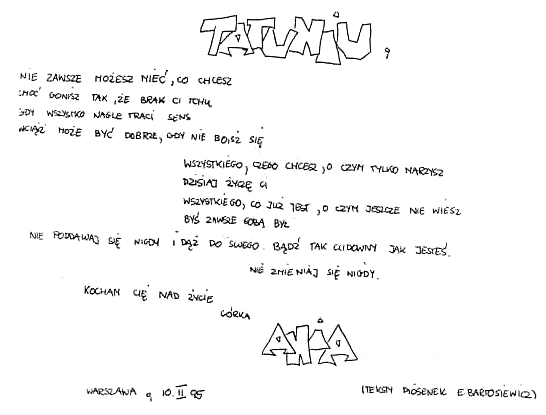 TATUNIU,
NIE ZAWSZE MOŻESZ MIEĆ, CO CHCESZ
CHOĆ GONISZ TAK, ŻE BRAK CI TCHU
GDY WSZYSTKO NAGLE TRACI SENS
WCIĄŻ MOŻE BYĆ DOBRZE, GDY NIE BOISZ SIĘ
WSZYSTKIEGO, CZEGO CHCESZ, O CZYM TYLKO MARZYSZ
DZISIAJ ŻYCZĘ CI
WSZYSTKIEGO, CO JUŻ JEST, O CZYM JESZCZE NIE WIESZ
BYŚ ZAWSZE SOBĄ BYŁ
NIE PODDAWAJ SIĘ NIGDY I DĄŻ DO SWEGO. BĄDŹ TAK CUDOWNY JAK JESTEŚ.
NIE ZMIENIAJ SIĘ NIGDY.
KOCHAM CIĘ NAD ŻYCIE
CÓRKA
ANIA
WARSZAWA, 10.II 95
(TEKSTY PIOSENEK E. BARTOSIEWICZ)